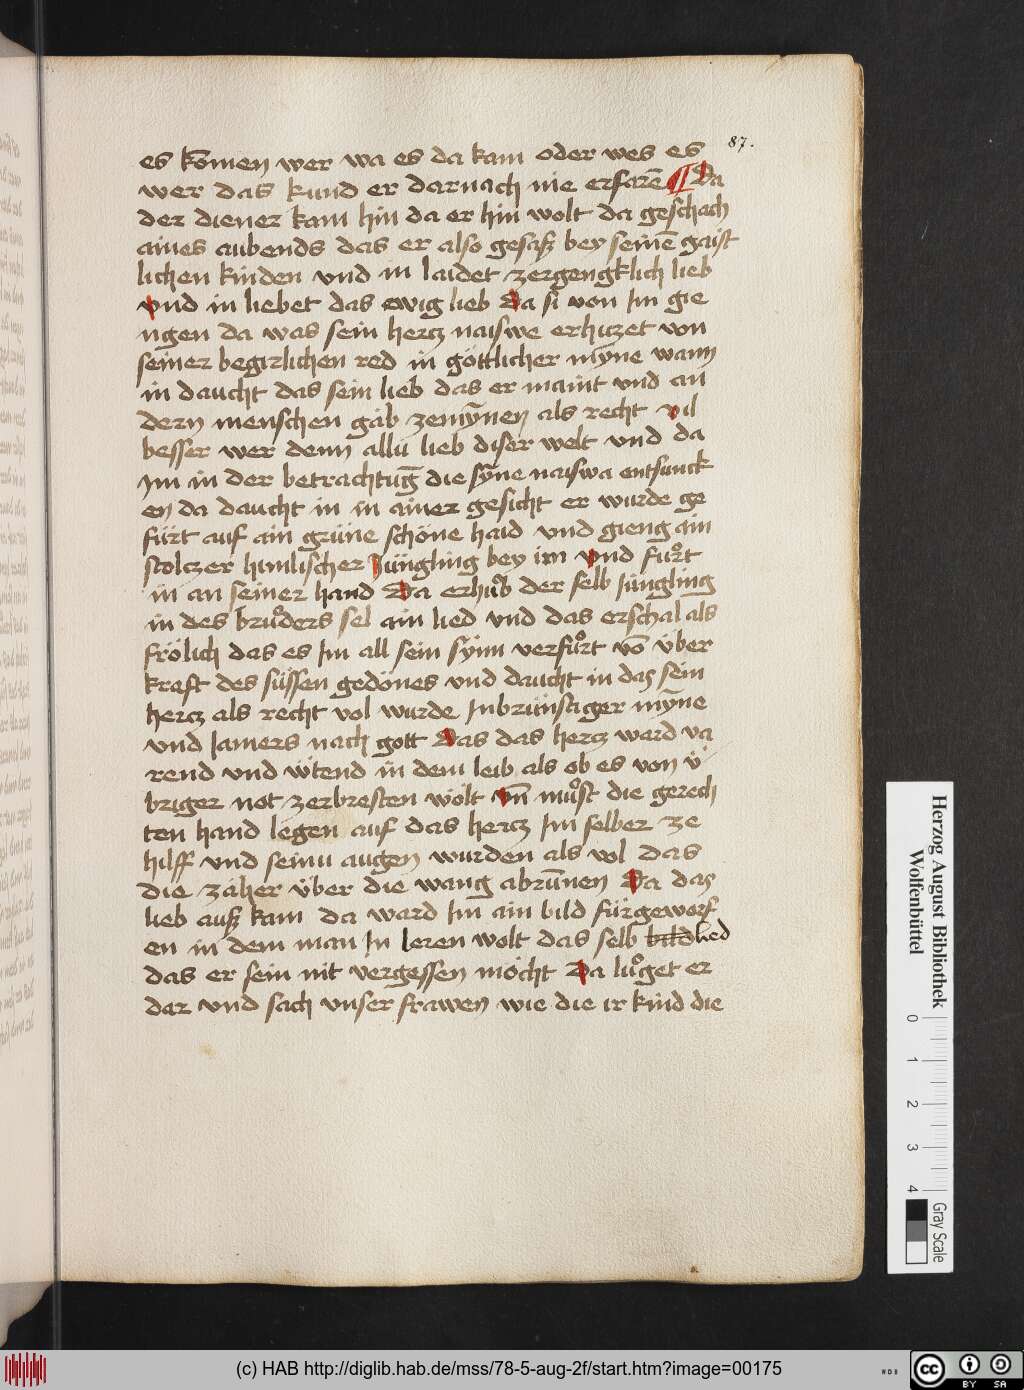 87.
es kōmen wer wa es da kam oder wes es
wer das kund er darnach nie erfarē ¶ Da
der diener kam hin da er hin wolt da geschach
aines aubends das er also gesaß bey seinē gaist
lichen kinden vnd in laidet zergengklich lieb
vnd in liebet das ewig lieb Da si von Im gie
ngen da was sein hercz naiswe erhiczet von
seiner begirlichen red in göttlicher mÿne wann
in daucht das sein lieb das er maint vnd an
dern menschen gäb zemȳnen als recht vil
besser wer denn allu lieb diser welt vnd da
Im in der betrachtūg die sȳne naiswa entsunck
en da daucht in in ainer gesicht er wurde ge
fürt auf ain grüne schöne haid vnd gieng ain
stolczer himlischer Jüngling bey im vnd fuͦrt
in an seiner hand Da erhuͦb der selb Jüngling
in des bruͦders sel ain lied vnd das erschal als
frölich das es Im all sein sÿnn verfuͦrt vō über
kraft des süssen gedönes vnd daucht in das sein
hercz als recht vol wurde Inbrünstiger mȳne
vnd Jamers nach gott Das das hercz ward va
rend vnd wütend in dem leib als ob es von ü
briger not zerbresten wölt vn̄ muͦst die gerech
ten hand legen auf das hercz Im selber ze
hilff vnd seinu augen wurden als vol das
die zäher über die wang abrūnen Da das
lieb auß kam da ward Im ain bild fürgeworf
en in dem man In leren wolt das selb bild lied
das er sein nit vergessen möcht Da luͦget er
dar vnd sach vnser frawen wie die ir kind die
Herzog August Bibliothek
Wolfenbüttel
0 1 2 3 4
Gray Scale
(c) HAB http://diglib.hab.de/mss/78-5-aug-2f/start.htm?image=00175
WDB
cc BY SA